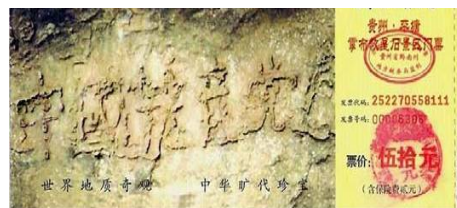 中國共产党
世界地质奇观 中华旷代珍宝
贵州·平塘
掌布藏字石景区门票
发票代码: 252270558111
发票号码: 00006396
票价: 伍拾元
(含保险费贰元)